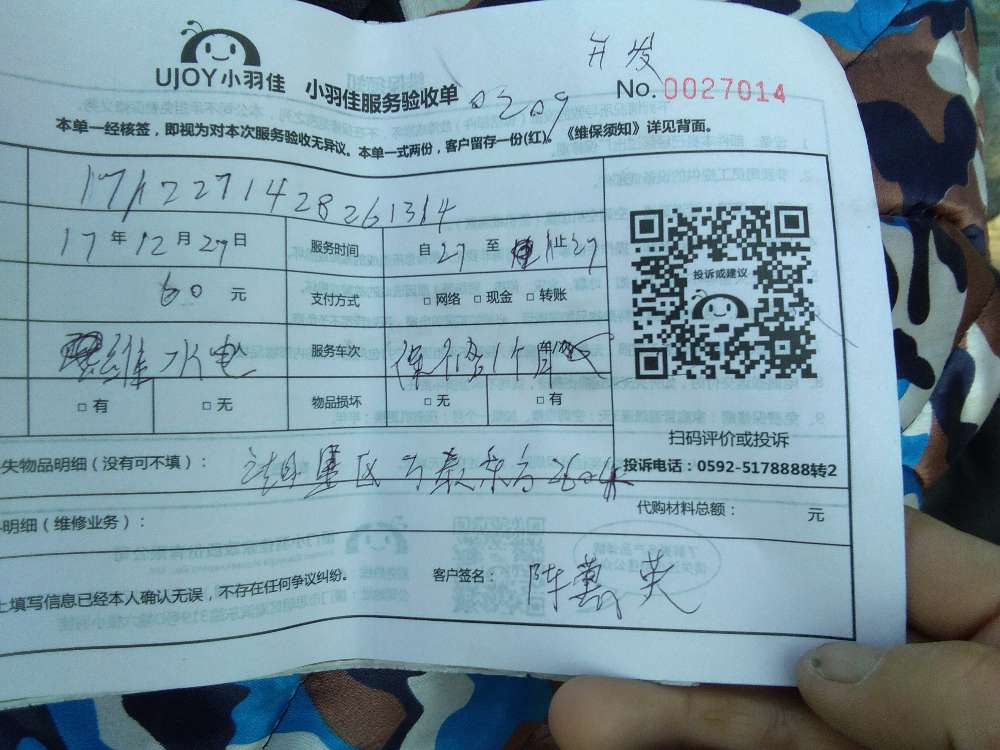 开发
UJOY小羽佳 小羽佳服务验收单 No.0027014
本单一经核签，即视为对本次服务验收无异议。本单一式两份，客户留存一份(红)。《维保须知》详见背面。
1712271428261314
17年12月27日 服务时间 自27至 止27
60元 支付方式 □网络 □现金 □转账
维水电 服务车次
□有 □无 物品损坏 □无 □有
投诉或建议
扫码评价或投诉
投诉电话：0592-5178888转2
失物品明细（没有可不填）：
明细（维修业务）： 代购材料总额： 元
上填写信息已经本人确认无误，不存在任何争议纠纷。 客户签名：